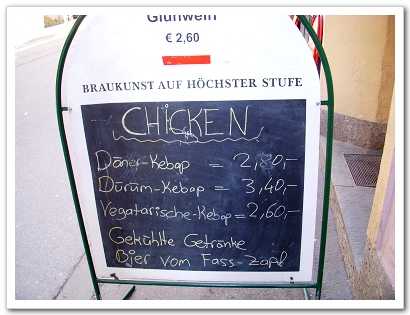 Glühwein
€ 2,60
BRAUKUNST AUF HÖCHSTER STUFE
CHICKEN
Döner-Kebap = 2,80,-
Dürüm-Kebap = 3,40,-
Vegatarische-Kebap = 2,60,-
Gekühlte Getränke
Bier vom Fass-Zapf